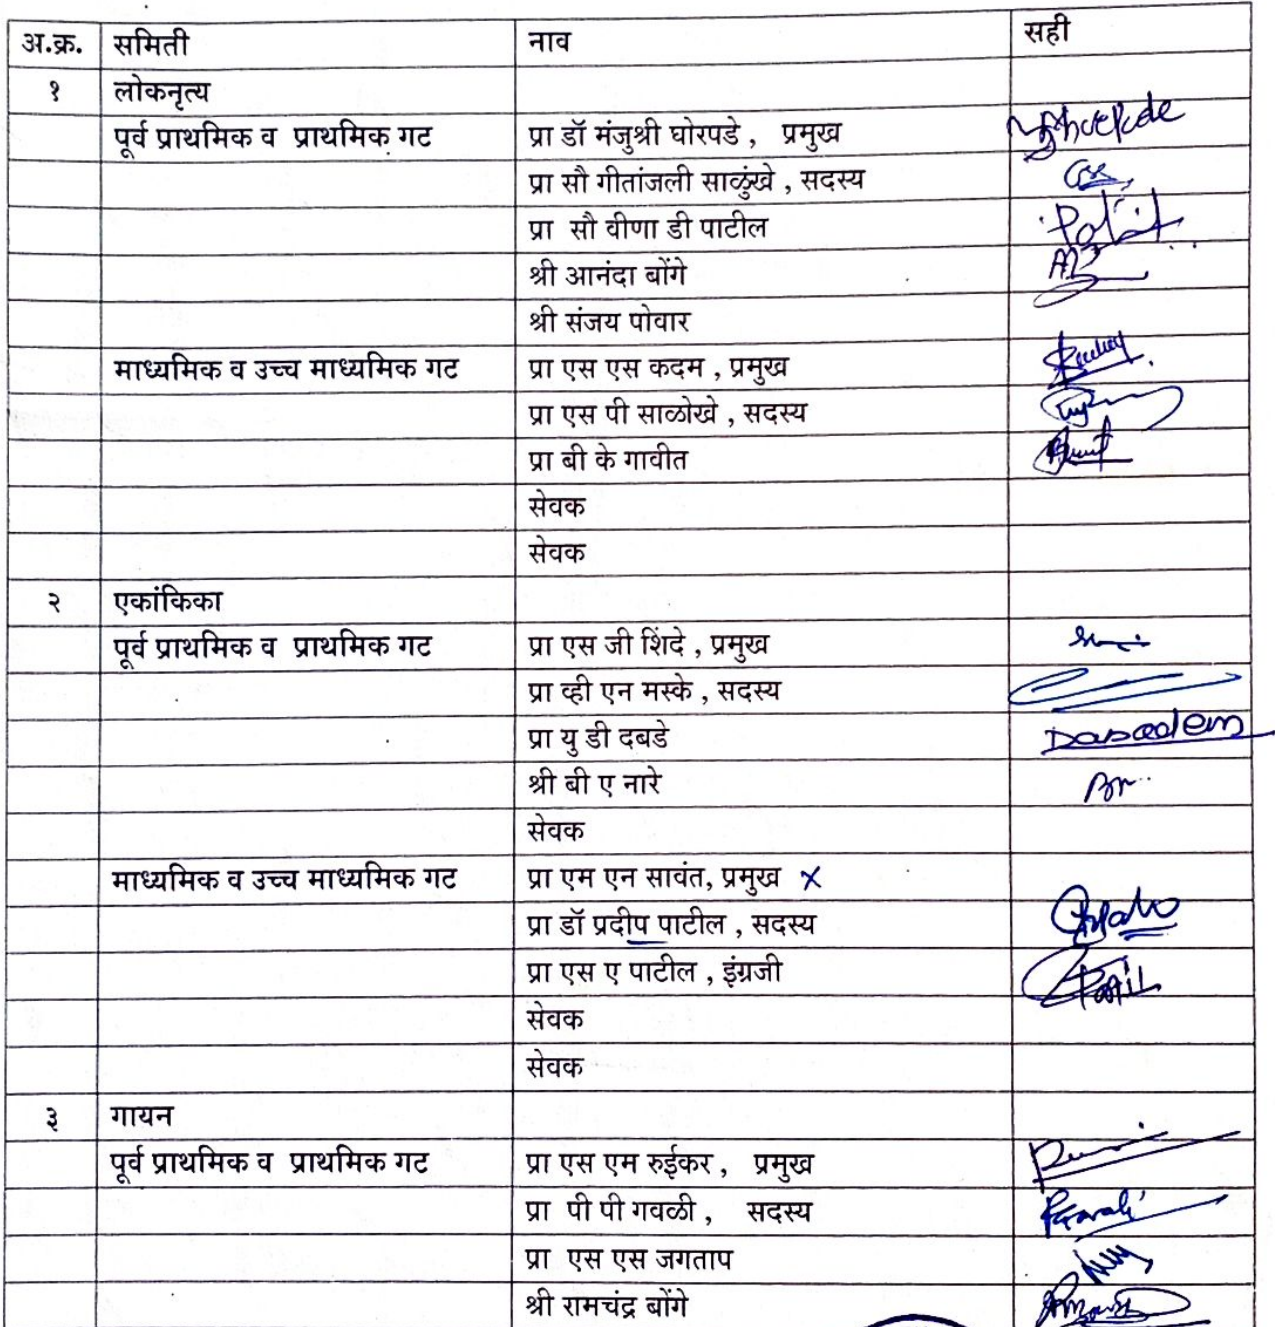 अ.क्र. समिती नाव सही
१ लोकनृत्य
पूर्व प्राथमिक व प्राथमिक गट प्रा डॉ मंजुश्री घोरपडे , प्रमुख
प्रा सौ गीतांजली साळुंखे , सदस्य
प्रा सौ वीणा डी पाटील
श्री आनंदा बोंगे
श्री संजय पोवार
माध्यमिक व उच्च माध्यमिक गट प्रा एस एस कदम , प्रमुख
प्रा एस पी साळोखे , सदस्य
प्रा बी के गावीत
सेवक
सेवक
२ एकांकिका
पूर्व प्राथमिक व प्राथमिक गट प्रा एस जी शिंदे , प्रमुख
प्रा व्ही एन मस्के , सदस्य
प्रा यु डी दबडे
श्री बी ए नारे
सेवक
माध्यमिक व उच्च माध्यमिक गट प्रा एम एन सावंत, प्रमुख x
प्रा डॉ प्रदीप पाटील , सदस्य
प्रा एस ए पाटील , इंग्रजी
सेवक
सेवक
३ गायन
पूर्व प्राथमिक व प्राथमिक गट प्रा एस एम रुईकर , प्रमुख
प्रा पी पी गवळी , सदस्य
प्रा एस एस जगताप
श्री रामचंद्र बोंगे